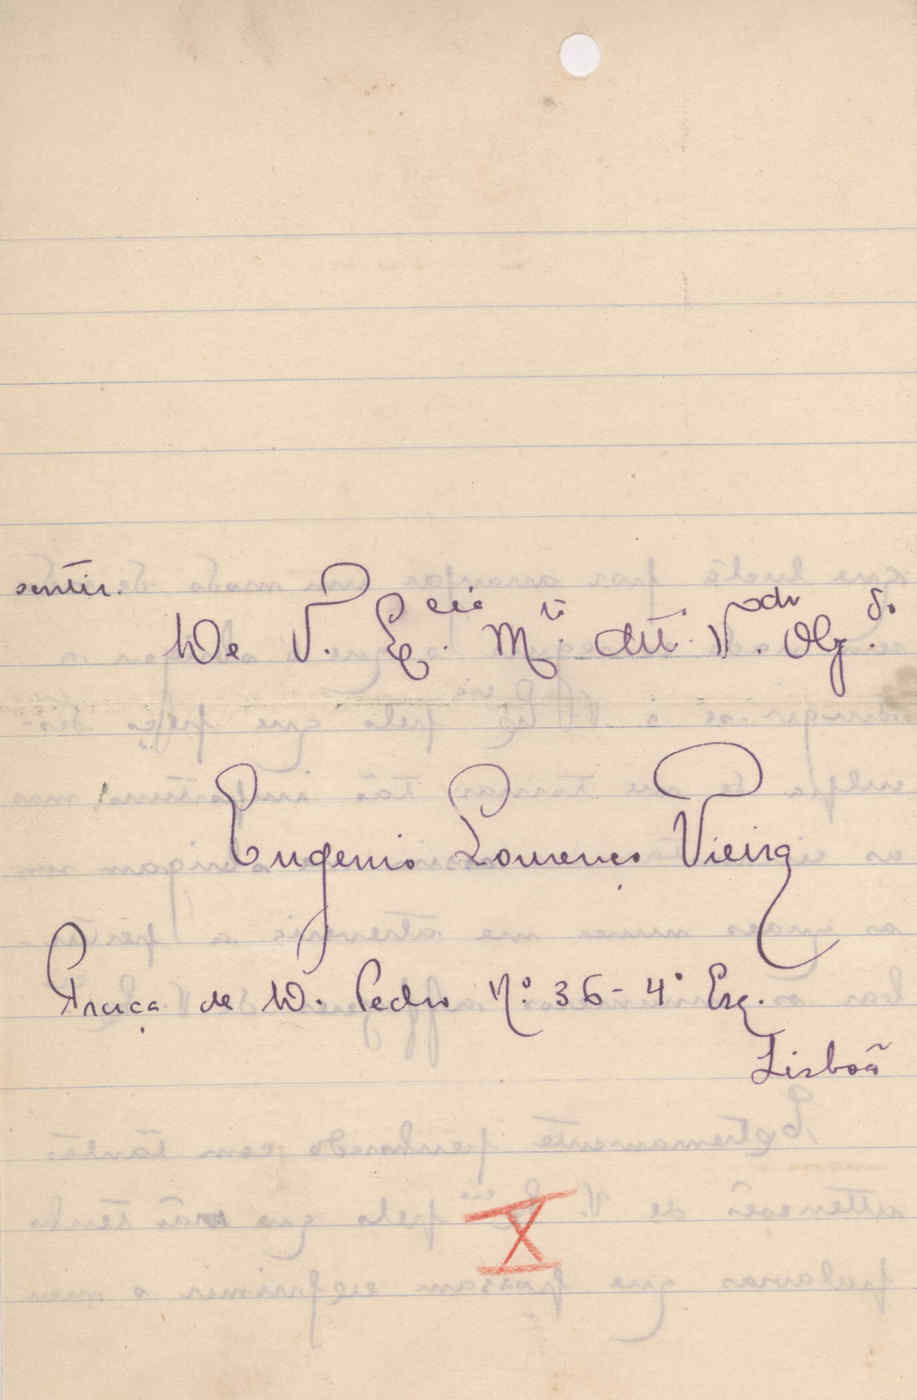 sentir.
De V. Ex.cia M.to Att. V.dor Obg.do
Eugenio Lourenço Vieira
Praça de D. Pedro N.º 36-4º Esq.
Lisboa
X